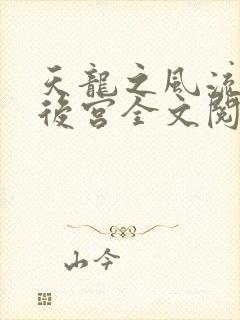 天龍之風流
後宮全文閱
山今